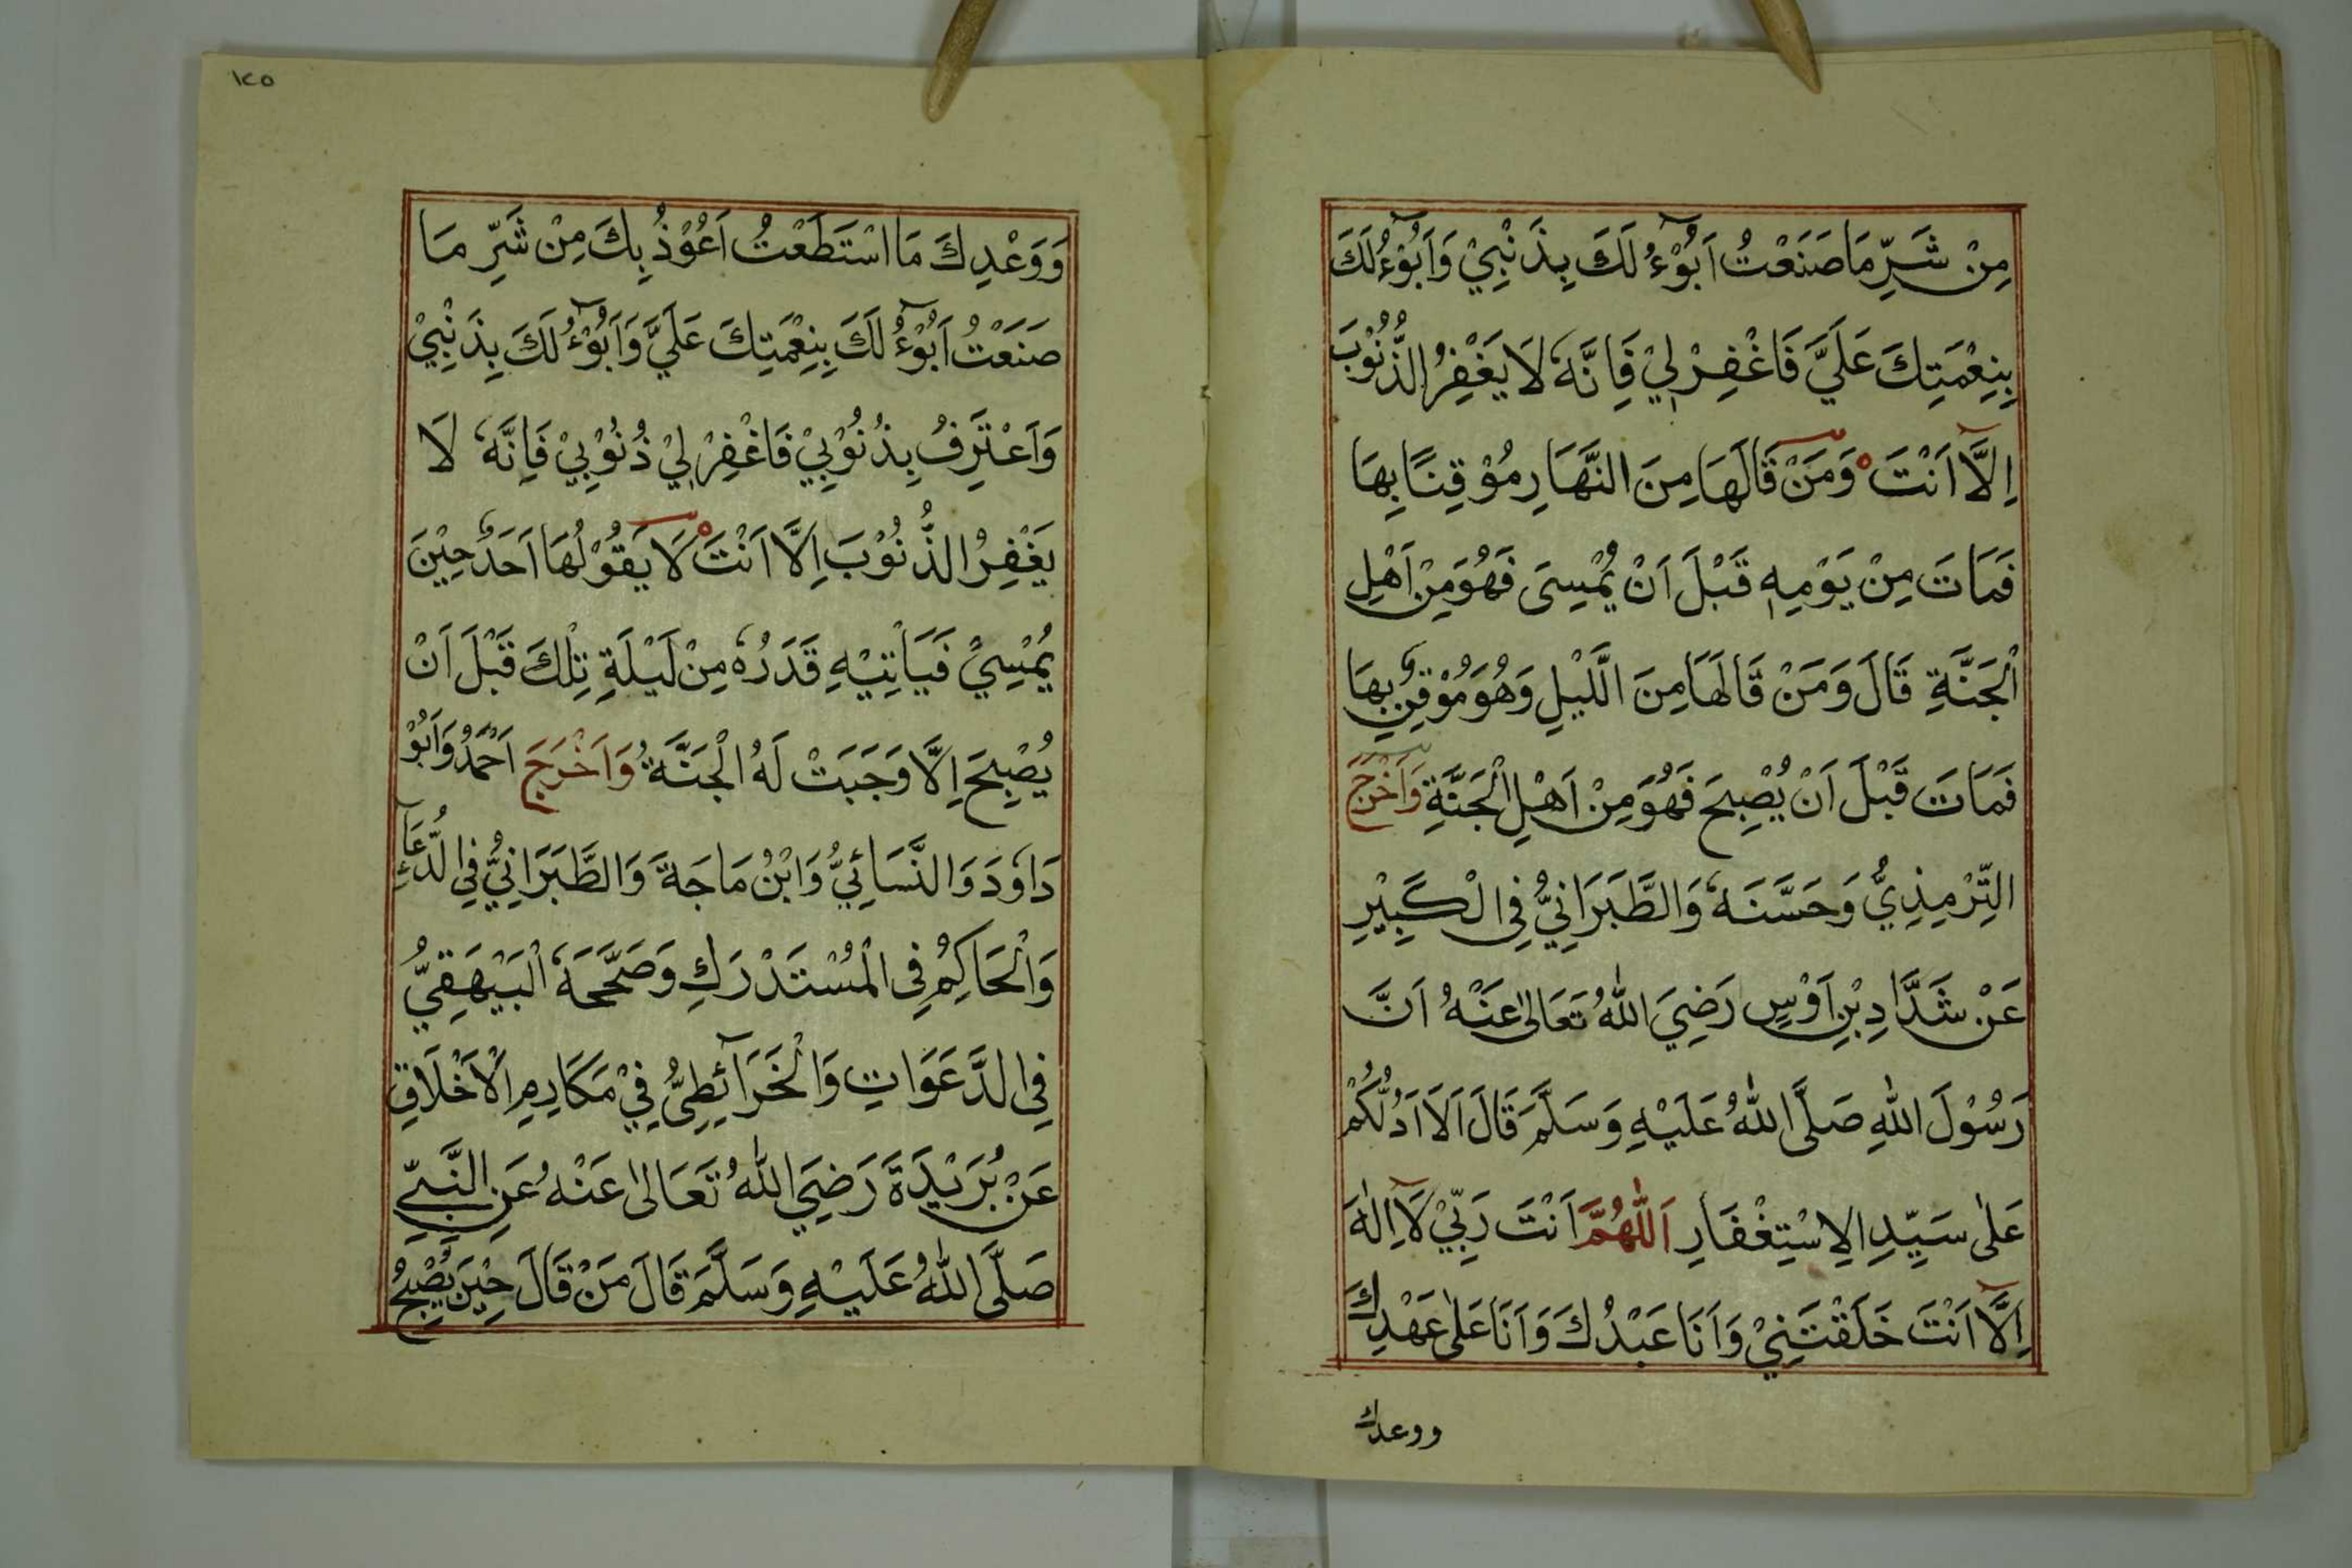 مِنْ شَرِّ مَا صَنَعْتُ اَبُوْٓءُ لَكَ بِذَنْبِيْ وَاَبُوْٓءُ لَكَ
بِنِعْمَتِكَ عَلَيَّ فَاغْفِرْ لِيْ فَاِنَّهٗ لَا يَغْفِرُ الذُّنُوْبَ
اِلَّآ اَنْتَ ۝ وَمَنْ قَالَهَا مِنَ النَّهَارِ مُوْقِنًا بِهَا
فَمَاتَ مِنْ يَوْمِهٖ قَبْلَ اَنْ يُمْسِىَ فَهُوَ مِنْ اَهْلِ
الْجَنَّةِ قَالَ وَمَنْ قَالَهَا مِنَ الَّليْلِ وَهُوَ مُوْقِنٌ بِهَا
فَمَاتَ قَبْلَ اَنْ يُصْبِحَ فَهُوَ مِنْ اَهْلِ الْجَنَّةِ وَاَخْرَجَ
التِّرْمِذِيُّ وَحَسَّنَهٗ وَالطَّبَرَانِيُّ فِى الْكَبِيْرِ
عَنْ شَدَّادِ بْنِ اَوْسٍ رَضِيَ اللّٰهُ تَعَالٰى عَنْهُ اَنَّ
رَسُوْلَ اللّٰهِ صَلَّى اللّٰهُ عَلَيْهِ وَسَلَّمَ قَالَ اَلَا اَدُلُّكُمْ
عَلٰى سَيِّدِ الِاسْتِغْفَارِ اَللّٰهُمَّ اَنْتَ رَبِّيْ لَآ اِلٰهَ
اِلَّآ اَنْتَ خَلَقْتَنِيْ وَاَنَا عَبْدُكَ وَاَنَا عَلٰى عَهْدِكَ
ووعدك
١٢٥
وَوَعْدِكَ مَا اسْتَطَعْتُ اَعُوْذُ بِكَ مِنْ شَرِّ مَا
صَنَعْتُ اَبُوْٓءُ لَكَ بِنِعْمَتِكَ عَلَيَّ وَاَبُوْٓءُ لَكَ بِذَنْبِيْ
وَاَعْتَرِفُ بِذُنُوْبِيْ فَاغْفِرْ لِيْ ذُنُوْبِيْ فَاِنَّهٗ لَا
يَغْفِرُ الذُّنُوْبَ اِلَّا اَنْتَ ۝ لَا يَقُوْلُهَا اَحَدٌ حِيْنَ
يُمْسِيْ فَيَاْتِيْهِ قَدَرُهٗ مِنْ لَيْلَةِ تِلْكَ قَبْلَ اَنْ
يُصْبِحَ اِلَّا وَجَبَتْ لَهُ الْجَنَّةُ وَاَخْرَجَ اَحْمَدُ وَاَبُوْ
دَاوٗدَ وَالنَّسَائِيُّ وَابْنُ مَاجَةَ وَالطَّبَرَانِيُّ فِي الدُّعَآءِ
وَالْحَاكِمُ فِى الْمُسْتَدْرَكِ وَصَحَّحَهٗ الْبَيْهَقِيُّ
فِي الدَّعَوَاتِ وَالْخَرَآئِطِىُّ فِيْ مَكَارِمِ الْاَخْلَاقِ
عَنْ بُرَيْدَةَ رَضِيَ اللّٰهُ تَعَالٰى عَنْهُ عَنِ النَّبِيِّ
صَلَّى اللّٰهُ عَلَيْهِ وَسَلَّمَ قَالَ مَنْ قَالَ حِيْنَ يُصْبِحُ